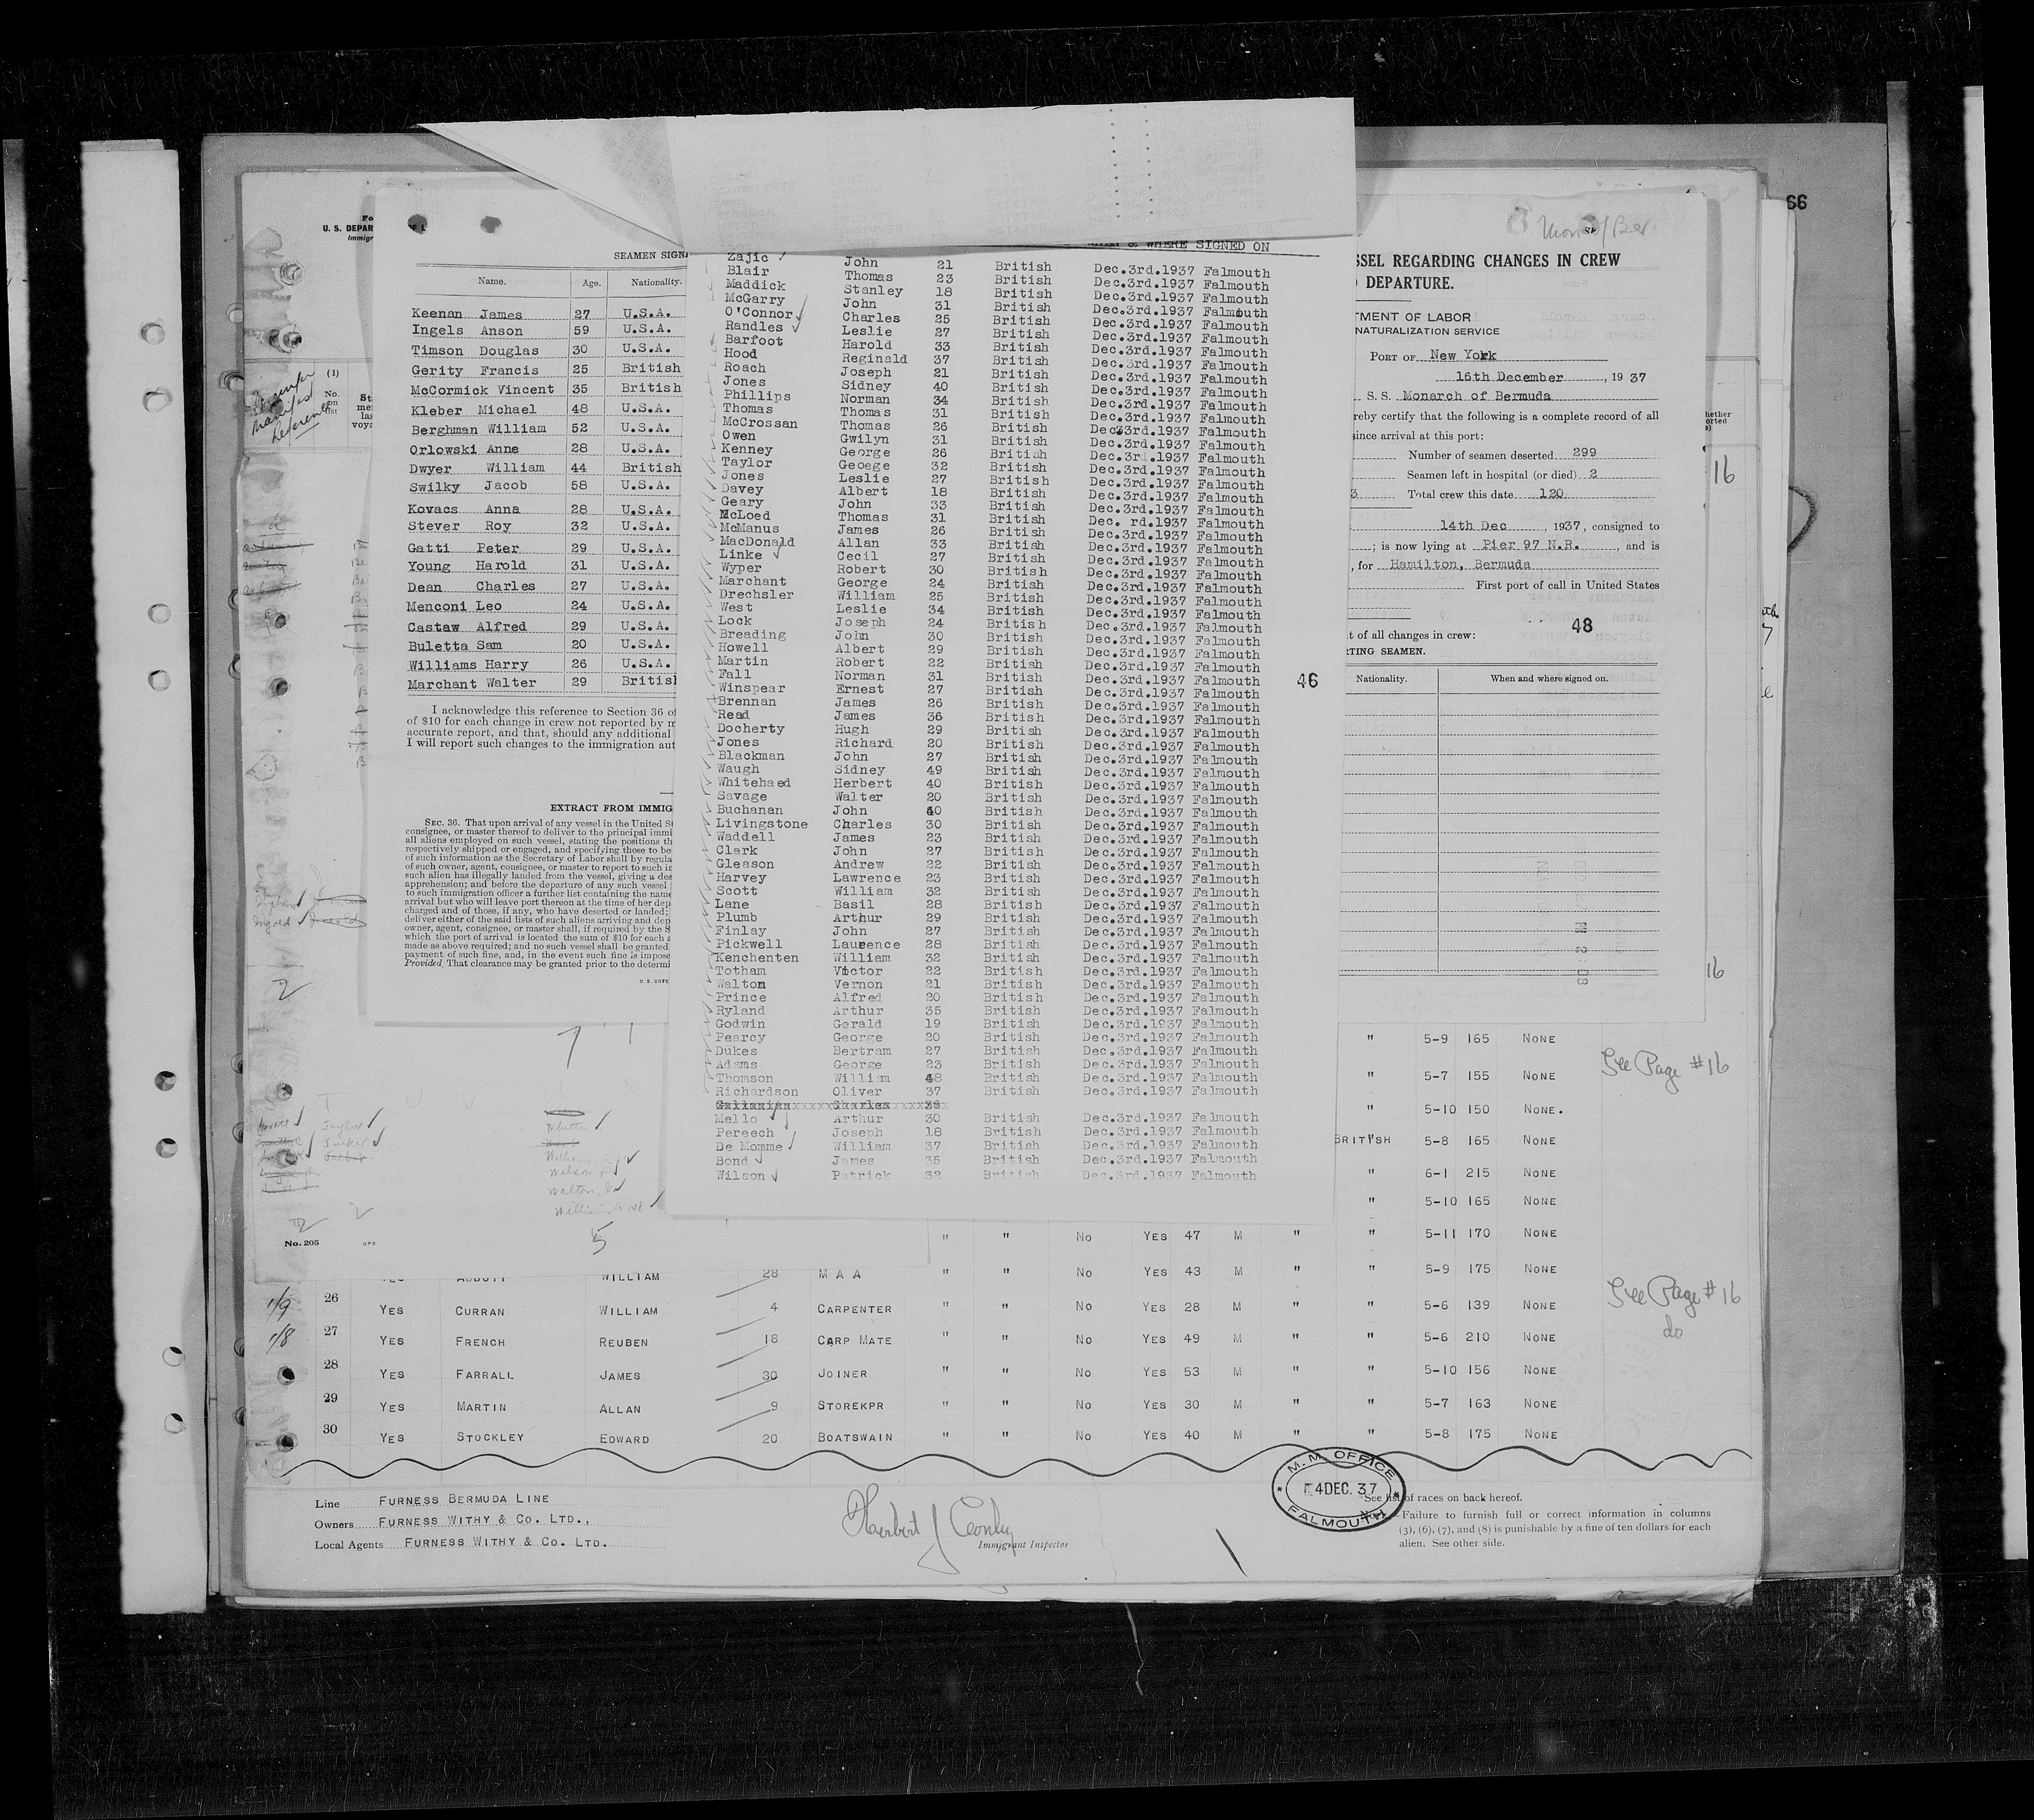 66
Fo
U. S. DEPAR
Immigr
(1)
No.
on
list
St
me
las
voya
SEAMEN SIGN
Name. Age. Nationality.
Keenan James 27 U.S.A.
Ingels Anson 59 U.S.A.
Timson Douglas 30 U.S.A.
Gerity Francis 25 British
McCormick Vincent 35 British
Kleber Michael 48 U.S.A.
Berghman William 52 U.S.A.
Orlowski Anne 28 U.S.A.
Dwyer William 44 British
Swilky Jacob 58 U.S.A.
Kovacs Anna 28 U.S.A.
Stever Roy 32 U.S.A.
Gatti Peter 29 U.S.A.
Young Harold 31 U.S.A.
Dean Charles 27 U.S.A.
Menconi Leo 24 U.S.A.
Castaw Alfred 29 U.S.A.
Buletta Sam 20 U.S.A.
Williams Harry 26 U.S.A.
Marchant Walter 29 British
I acknowledge this reference to Section 36 of
of $10 for each change in crew not reported by m
accurate report, and that, should any additional
I will report such changes to the immigration aut
EXTRACT FROM IMMIG
SEC. 36. That upon arrival of any vessel in the United St
consignee, or master thereof to deliver to the principal immi
all aliens employed on such vessel, stating the positions th
respectively shipped or engaged, and specifying those to be
of such information as the Secretary of Labor shall by regula
of such owner, agent, consignee, or master to report to such i
such alien has illegally landed from the vessel, giving a des
apprehension; and before the departure of any such vessel
to such immigration officer a further list containing the name
arrival but who will leave port thereon at the time of her dep
charged and of those, if any, who have deserted or landed;
deliver either of the said lists of such aliens arriving and dep
owner, agent, consignee, or master shall, if required by the S
which the port of arrival is located the sum of $10 for each a
made as above required; and no such vessel shall be granted
payment of such fine, and, in the event such fine is impose
Provided, That clearance may be granted prior to the determi
U. S. GOVE
& WHERE SIGNED ON
Zajic John 21 British Dec.3rd.1937 Falmouth
Blair Thomas 23 British Dec.3rd.1937 Falmouth
Maddick Stanley 18 British Dec.3rd.1937 Falmouth
McGarry John 31 British Dec.3rd.1937 Falmouth
O'Connor Charles 25 British Dec.3rd.1937 Falmouth
Randles Leslie 27 British Dec.3rd.1937 Falmouth
Barfoot Harold 33 British Dec.3rd.1937 Falmouth
Hood Reginald 37 British Dec.3rd.1937 Falmouth
Roach Joseph 21 British Dec.3rd.1937 Falmouth
Jones Sidney 40 British Dec.3rd.1937 Falmouth
Phillips Norman 34 British Dec.3rd.1937 Falmouth
Thomas Thomas 31 British Dec.3rd.1937 Falmouth
McCrossan Thomas 26 British Dec.3rd.1937 Falmouth
Owen Gwilyn 31 British Dec.3rd.1937 Falmouth
Kenney George 26 British Dec.3rd.1937 Falmouth
Taylor Geoege 32 British Dec.3rd.1937 Falmouth
Jones Leslie 27 British Dec.3rd.1937 Falmouth
Davey Albert 18 British Dec.3rd.1937 Falmouth
Geary John 33 British Dec.3rd.1937 Falmouth
McLoed Thomas 31 British Dec. rd.1937 Falmouth
McManus James 26 British Dec.3rd.1937 Falmouth
MacDonald Allan 33 British Dec.3rd.1937 Falmouth
Linke Cecil 27 British Dec.3rd.1937 Falmouth
Wyper Robert 30 British Dec.3rd.1937 Falmouth
Marchant George 24 British Dec.3rd.1937 Falmouth
Drechsler William 25 British Dec.3rd.1937 Falmouth
West Leslie 34 British Dec.3rd.1937 Falmouth
Lock Joseph 24 British Dec.3rd.1937 Falmouth
Breading John 30 British Dec.3rd.1937 Falmouth
Howell Albert 29 British Dec.3rd.1937 Falmouth
Martin Robert 22 British Dec.3rd.1937 Falmouth
Fall Norman 31 British Dec.3rd.1937 Falmouth
Winspear Ernest 27 British Dec.3rd.1937 Falmouth
Brennan James 26 British Dec.3rd.1937 Falmouth
Read James 36 British Dec.3rd.1937 Falmouth
Docherty Hugh 29 British Dec.3rd.1937 Falmouth
Jones Richard 20 British Dec.3rd.1937 Falmouth
Blackman John 27 British Dec.3rd.1937 Falmouth
Waugh Sidney 49 British Dec.3rd.1937 Falmouth
Whitehaed Herbert 40 British Dec.3rd.1937 Falmouth
Savage Walter 20 British Dec.3rd.1937 Falmouth
Buchanan John 40 British Dec.3rd.1937 Falmouth
Livingstone Charles 30 British Dec.3rd.1937 Falmouth
Waddell James 23 British Dec.3rd.1937 Falmouth
Clark John 27 British Dec.3rd.1937 Falmouth
Gleason Andrew 22 British Dec.3rd.1937 Falmouth
Harvey Lawrence 23 British Dec.3rd.1937 Falmouth
Scott William 32 British Dec.3rd.1937 Falmouth
Lane Basil 28 British Dec.3rd.1937 Falmouth
Plumb Arthur 29 British Dec.3rd.1937 Falmouth
Finlay John 27 British Dec.3rd.1937 Falmouth
Pickwell Laurence 28 British Dec.3rd.1937 Falmouth
Kenchenten William 32 British Dec.3rd.1937 Falmouth
Totham Victor 22 British Dec.3rd.1937 Falmouth
Walton Vernon 21 British Dec.3rd.1937 Falmouth
Prince Alfred 20 British Dec.3rd.1937 Falmouth
Ryland Arthur 35 British Dec.3rd.1937 Falmouth
Godwin Gerald 19 British Dec.3rd.1937 Falmouth
Pearcy George 20 British Dec.3rd.1937 Falmouth
Dukes Bertram 27 British Dec.3rd.1937 Falmouth
Adams George 23 British Dec.3rd.1937 Falmouth
Thomson William 48 British Dec.3rd.1937 Falmouth
Richardson Oliver 37 British Dec.3rd.1937 Falmouth
Mello Arthur 30 British Dec.3rd.1937 Falmouth
Pereech Joseph 18 British Dec.3rd.1937 Falmouth
De Momme William 37 British Dec.3rd.1937 Falmouth
Bond James 35 British Dec.3rd.1937 Falmouth
Wilson Patrick 32 British Dec.3rd.1937 Falmouth
46
SSEL REGARDING CHANGES IN CREW
DEPARTURE.
TMENT OF LABOR
NATURALIZATION SERVICE
PORT OF New York
16th December, 19 37
S. S. Monarch of Bermuda
reby certify that the following is a complete record of all
since arrival at this port:
Number of seamen deserted 299
Seamen left in hospital (or died) 2
3 Total crew this date 120
14th Dec, 1937, consigned to
; is now lying at Pier 97 N.R., and is
, for Hamilton, Bermuda
First port of call in United States
48
t of all changes in crew:
RTING SEAMEN.
Nationality. When and where signed on.
hether
orted
16
16
" 5-9 165 NONE
See Page #16
" 5-7 155 NONE
" 5-10 150 NONE.
BRITISH 5-8 165 NONE
" 6-1 215 NONE
" 5-10 165 NONE
No. 205
GPO
5
" " No YES 47 M " " 5-11 170 NONE
ABBOTT WILLIAM 28 M A A " " No YES 43 M " " 5-9 175 NONE
26 YES CURRAN WILLIAM 4 CARPENTER " " No YES 28 M " " 5-6 139 NONE See Page #16
27 YES FRENCH REUBEN 18 CARP MATE " " No YES 49 M " " 5-6 210 NONE do
28 YES FARRALL JAMES 30 JOINER " " No YES 53 M " " 5-10 156 NONE
29 YES MARTIN ALLAN 9 STOREKPR " " No YES 30 M " " 5-7 163 NONE
30 YES STOCKLEY EDWARD 20 BOATSWAIN " " No YES 40 M " " 5-8 175 NONE
Line FURNESS BERMUDA LINE
Owners FURNESS WITHY & CO. LTD.,
Local Agents FURNESS WITHY & CO. LTD.
Immigrant Inspector
M. M. OFFICE
4 DEC. 37
FALMOUTH
See list of races on back hereof.
Failure to furnish full or correct information in columns
(3), (6), (7), and (8) is punishable by a fine of ten dollars for each
alien. See other side.